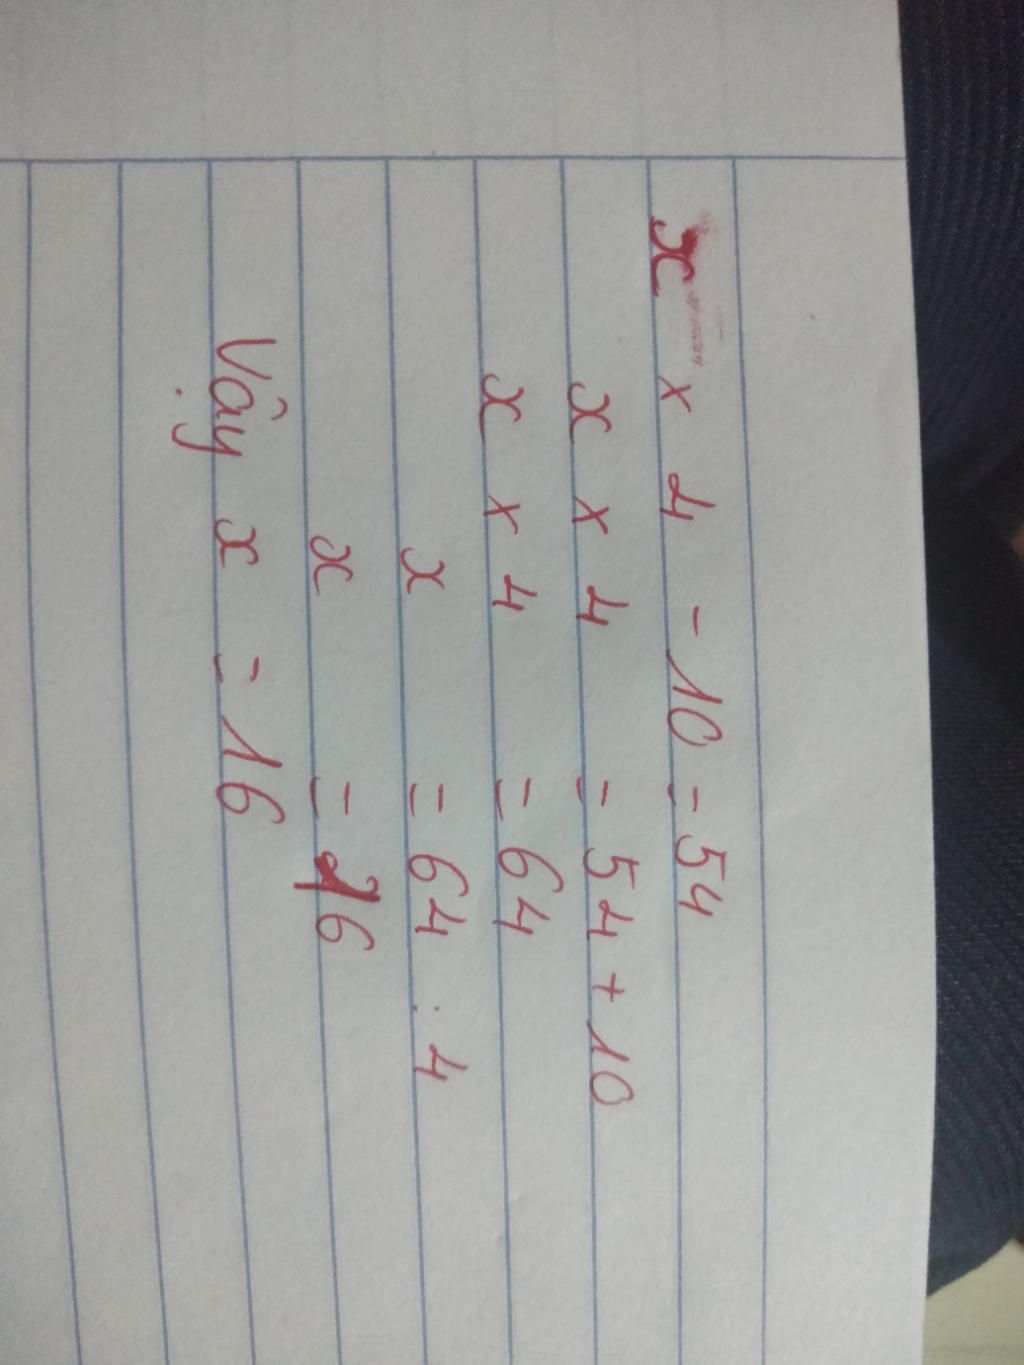 x × 4 - 10 = 54
x × 4 = 54 + 10
x × 4 = 64
x = 64 : 4
x = 16
Vậy x = 16